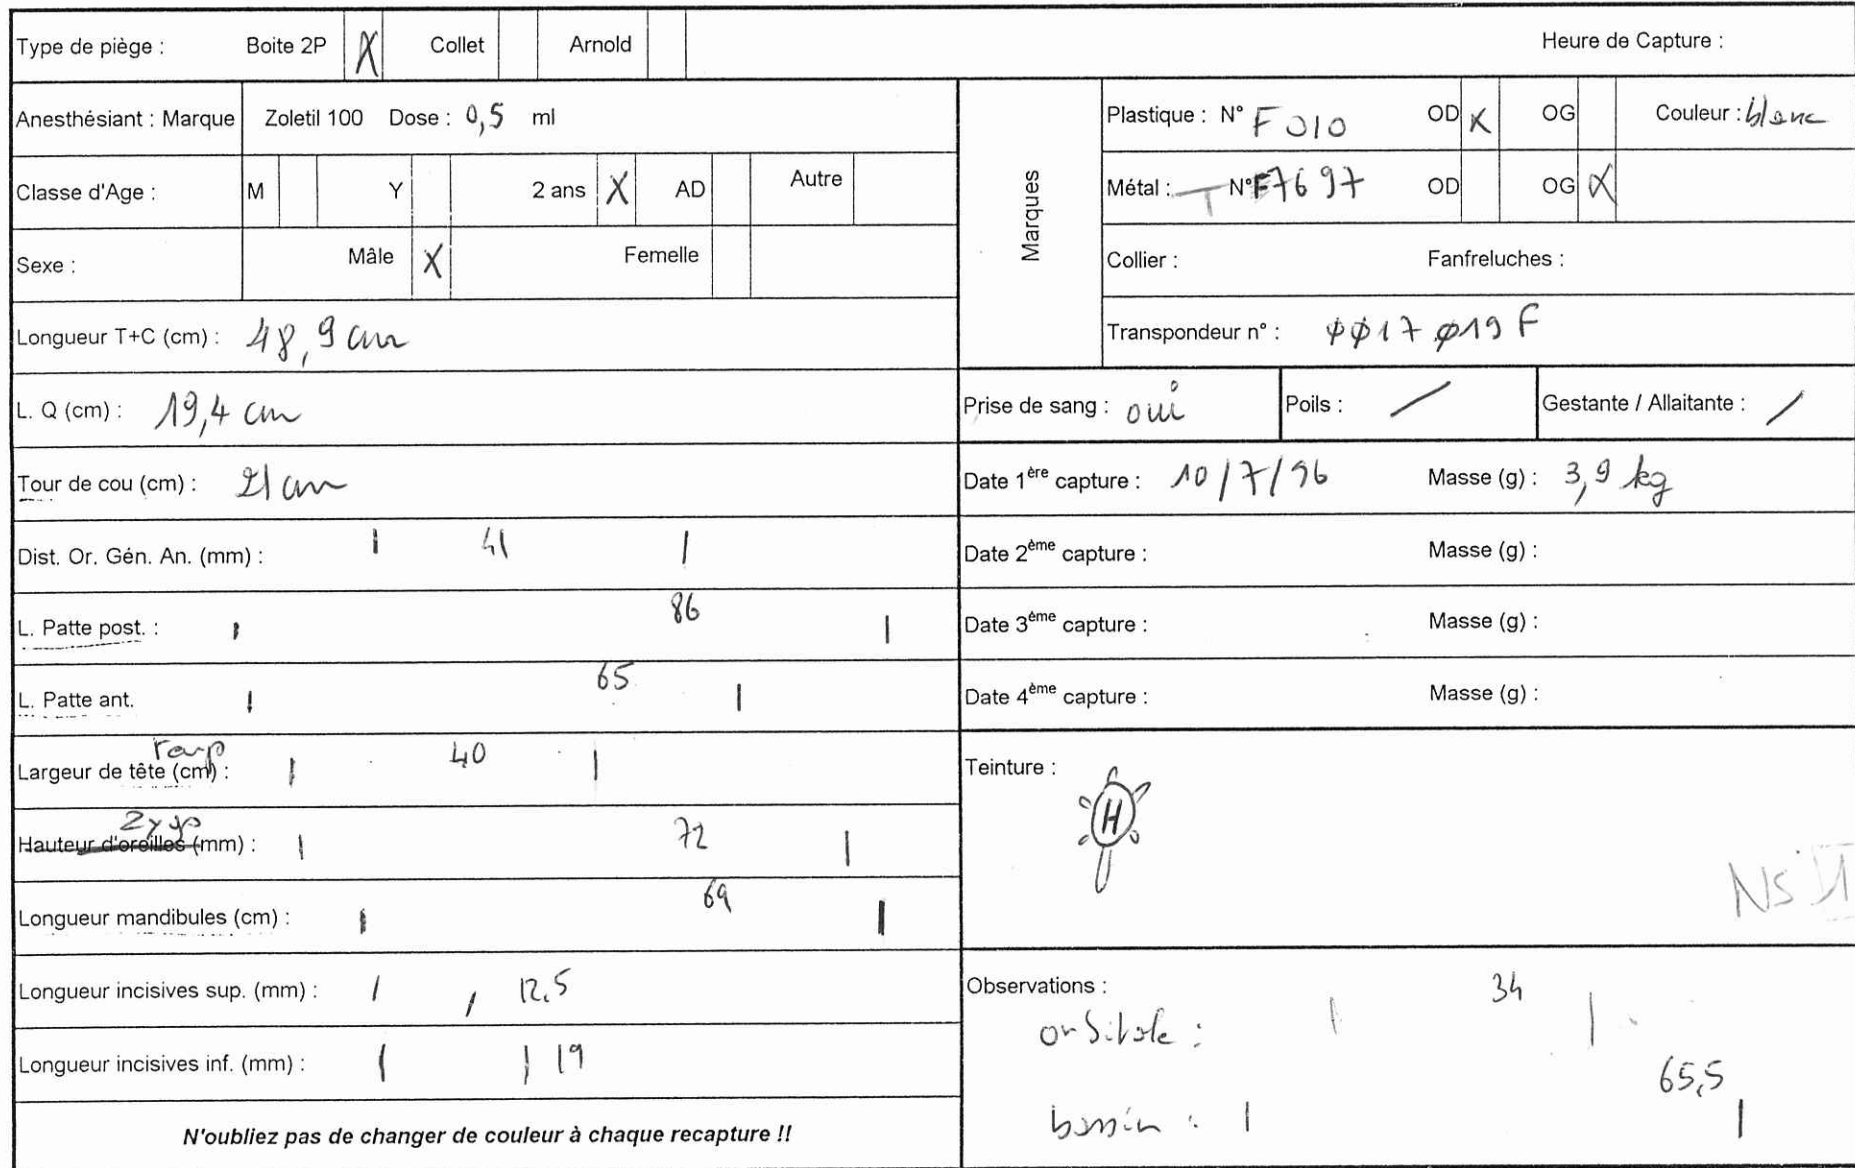 Type de piège : Boite 2P X Collet Arnold Heure de Capture :
Anesthésiant : Marque Zoletil 100 Dose : 0,5 ml
Classe d'Age : M Y 2 ans X AD Autre
Sexe : Mâle X Femelle
Longueur T+C (cm) : 48,9 cm
L. Q (cm) : 19,4 cm
Tour de cou (cm) : 21 cm
Dist. Or. Gén. An. (mm) : 41
L. Patte post. : 86
L. Patte ant. 65
Largeur de tête (cm) : 40
Zygo
Hauteur d'oreilles (mm) : 72
Longueur mandibules (cm) : 69
Longueur incisives sup. (mm) : 12,5
Longueur incisives inf. (mm) : 19
N'oubliez pas de changer de couleur à chaque recapture !!
Marques
Plastique : N° F010 OD X OG Couleur : blanc
Métal : T N° F7697 OD OG X
Collier : Fanfreluches :
Transpondeur n° : 0017019F
Prise de sang : oui Poils : / Gestante / Allaitante : /
Date 1ère capture : 10/7/96 Masse (g) : 3,9 kg
Date 2ème capture : Masse (g) :
Date 3ème capture : Masse (g) :
Date 4ème capture : Masse (g) :
Teinture :
H
NS
Observations : 34
orbitale :
65,5
bassin :